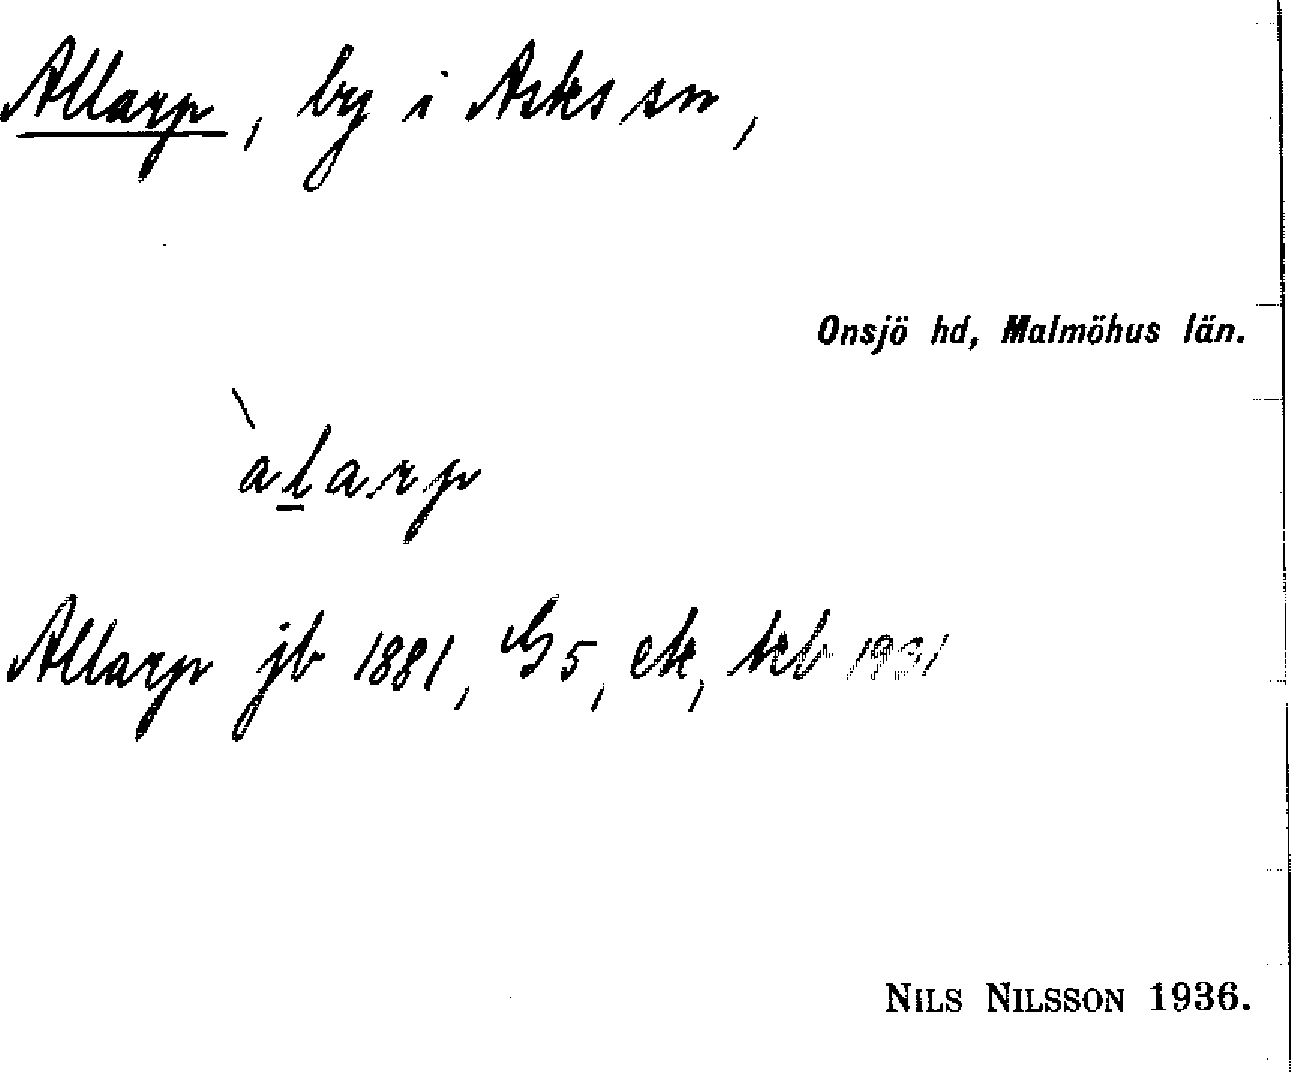 Allarp, by i Asks sn,
Onsjö hd, Malmöhus län.
àl̲arp
Allarp jb 1881, G5, ek, kb 1931
NILS NILSSON 1936.